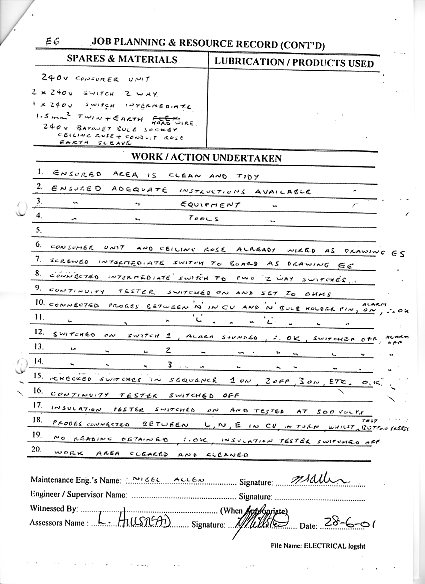 E6
JOB PLANNING & RESOURCE RECORD (CONT'D)
SPARES & MATERIALS
LUBRICATION / PRODUCTS USED
240V CONSUMER UNIT
2 x 240V SWITCH 2 WAY
1 x 240V SWITCH INTERMEDIATE
1.5mm² TWIN + EARTH HARD WIRE
240V BAYONET BULB SOCKET
CEILING ROSE + CONDUIT ROSE
EARTH SLEEVE
WORK / ACTION UNDERTAKEN
1. ENSURED AREA IS CLEAN AND TIDY
2. ENSURED ADEQUATE INSTRUCTIONS AVAILABLE
3. " " EQUIPMENT "
4. " " TOOLS "
5.
6. CONSUMER UNIT AND CEILING ROSE ALREADY WIRED AS DRAWING E5
7. SCREWED INTERMEDIATE SWITCH TO BOARD AS DRAWING E6
8. CONNECTED INTERMEDIATE SWITCH TO TWO 2 WAY SWITCHES.
9. CONTINUITY TESTER SWITCHED ON AND SET TO OHMS
10. CONNECTED PROBES BETWEEN 'N' IN CU AND 'N' BULB HOLDER PIN, ALARM ON, ∴ OK
11. " " " 'L' " " 'L' " " "
12. SWITCHED ON SWITCH 1, ALARM SOUNDED, ∴ OK, SWITCHED OFF ALARM OFF
13. " " " 2 " " " "
14. " " " 3 " " " "
15. CHECKED SWITCHES IN SEQUENCE 1 ON, 2 OFF, 3 ON, ETC, O.K
16. CONTINUITY TESTER SWITCHED OFF
17. INSULATION TESTER SWITCHED ON AND TESTED AT 500 VOLTS
18. PROBES CONNECTED BETWEEN L, N, E IN CU IN TURN WHILST TEST BUTTON PRESSED
19. NO READING OBTAINED ∴ O.K, INSULATION TESTER SWITCHED OFF
20. WORK AREA CLEARED AND CLEANED
Maintenance Eng.'s Name: NIGEL ALLEN Signature:
Engineer / Supervisor Name: Signature:
Witnessed By: (When Appropriate)
Assessors Name: L. Signature: Date: 28-6-01
File Name: ELECTRICAL logsht